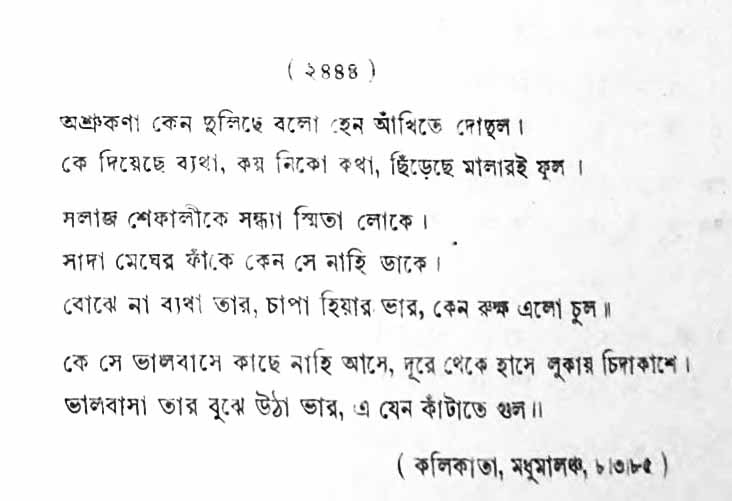 ( ২৪৪৪ )
অশ্রুকণা কেন দুলিছে বলো হেন আঁখিতে দোদুল।
কে দিয়েছে ব্যথা, কয় নিকো কথা, ছিঁড়েছে মালারই ফুল।
সলাজ শেফালীকে সন্ধ্যা স্মিতা লোকে।
সাদা মেঘের ফাঁকে কেন সে নাহি ডাকে।
বোঝে না ব্যথা তার, চাপা হিয়ার ভার, কেন রুক্ষ এলো চুল॥
কে সে ভালবাসে কাছে নাহি আসে, দূরে থেকে হাসে লুকায় চিদাকাশে।
ভালবাসা তার বুঝে উঠা ভার, এ যেন কাঁটাতে গুল॥
( কলিকাতা, মধুমালঞ্চ, ৮।৩।৮৫ )